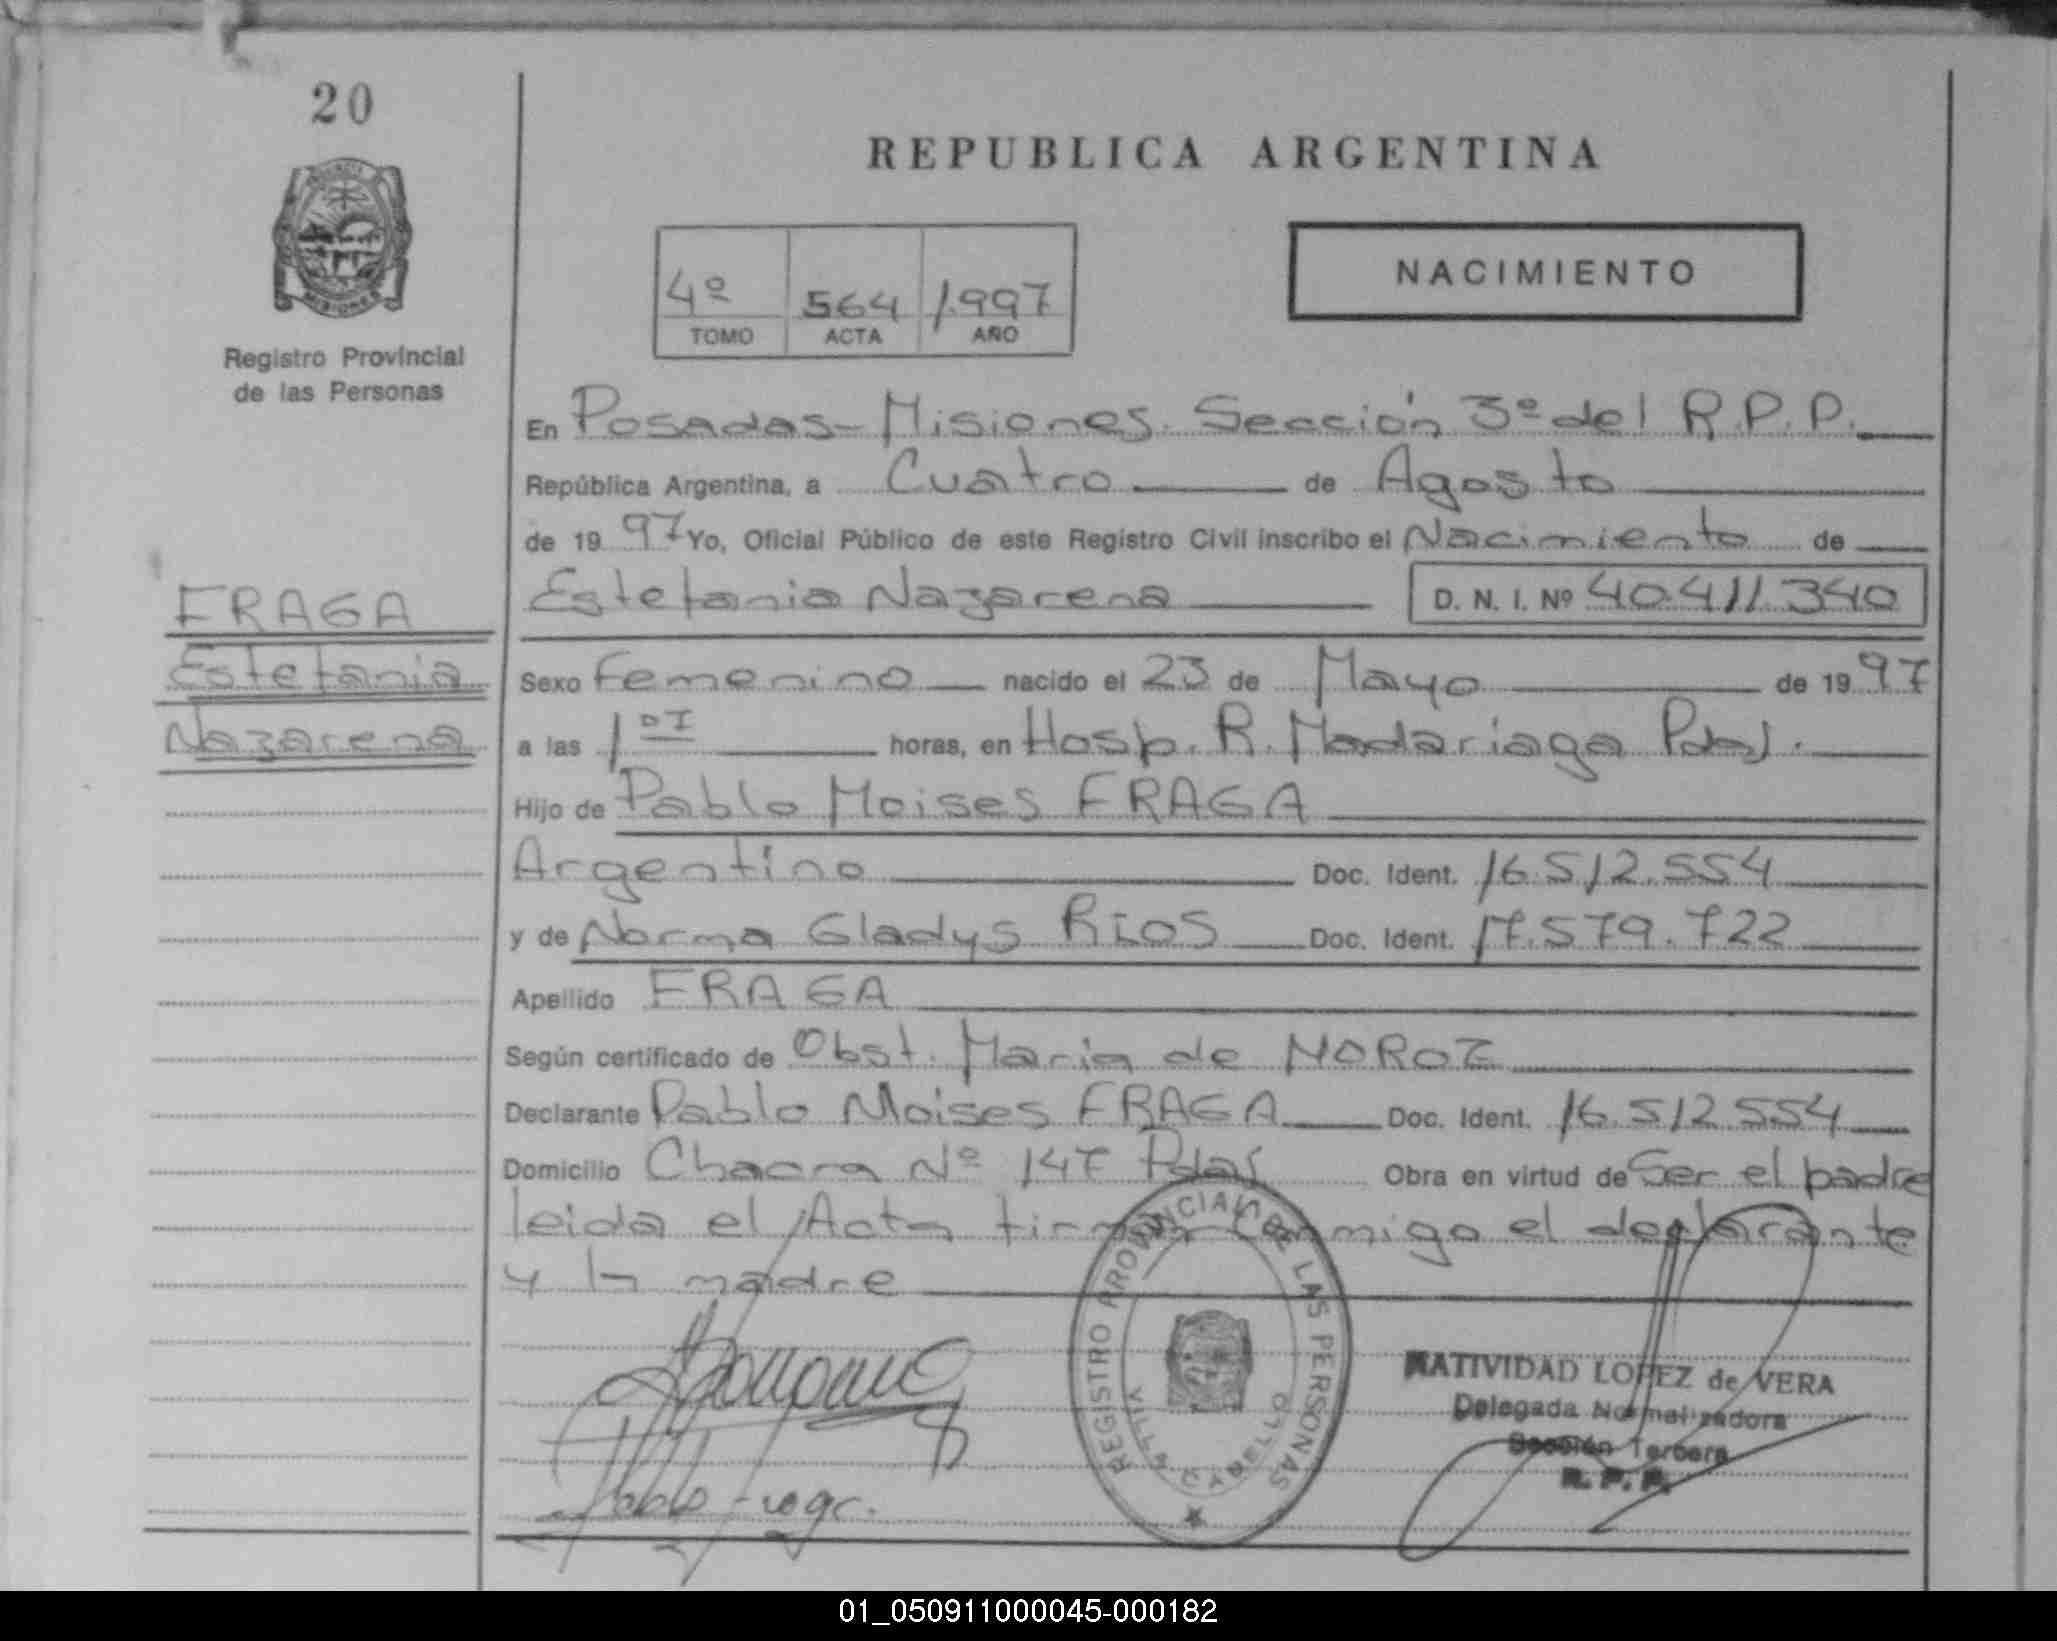 20
REPUBLICA ARGENTINA
NACIMIENTO
4º 564 1.997
TOMO ACTA AÑO
Registro Provincial
de las Personas
En Posadas-Misiones. Sección 3º del R.P.P.
República Argentina, a Cuatro de Agosto
de 19 97 Yo, Oficial Público de este Registro Civil inscribo el Nacimiento de
Estefania Nazarena D. N. I. Nº 40.411.340
FRAGA
Estefania
Nazarena
Sexo Femenino nacido el 23 de Mayo de 19 97
a las 1 horas, en Hosp. R. Madariaga Pdas.
Hijo de Pablo Moises FRAGA
Argentino Doc. Ident. 16.512.554
y de Norma Gladys RIOS Doc. Ident. 17.579.722
Apellido FRAGA
Según certificado de Obst. Maria de MOROZ
Declarante Pablo Moises FRAGA Doc. Ident. 16.512.554
Domicilio Chacra Nº 147 Pdas Obra en virtud de Ser el padre
leida el Acta firman Conmigo el declarante
y la madre
REGISTRO PROVINCIAL DE LAS PERSONAS
VILLA CABELLO
NATIVIDAD LOPEZ de VERA
Delegada Normalizadora
Sección Tercera
R. P. P.
01_050911000045-000182